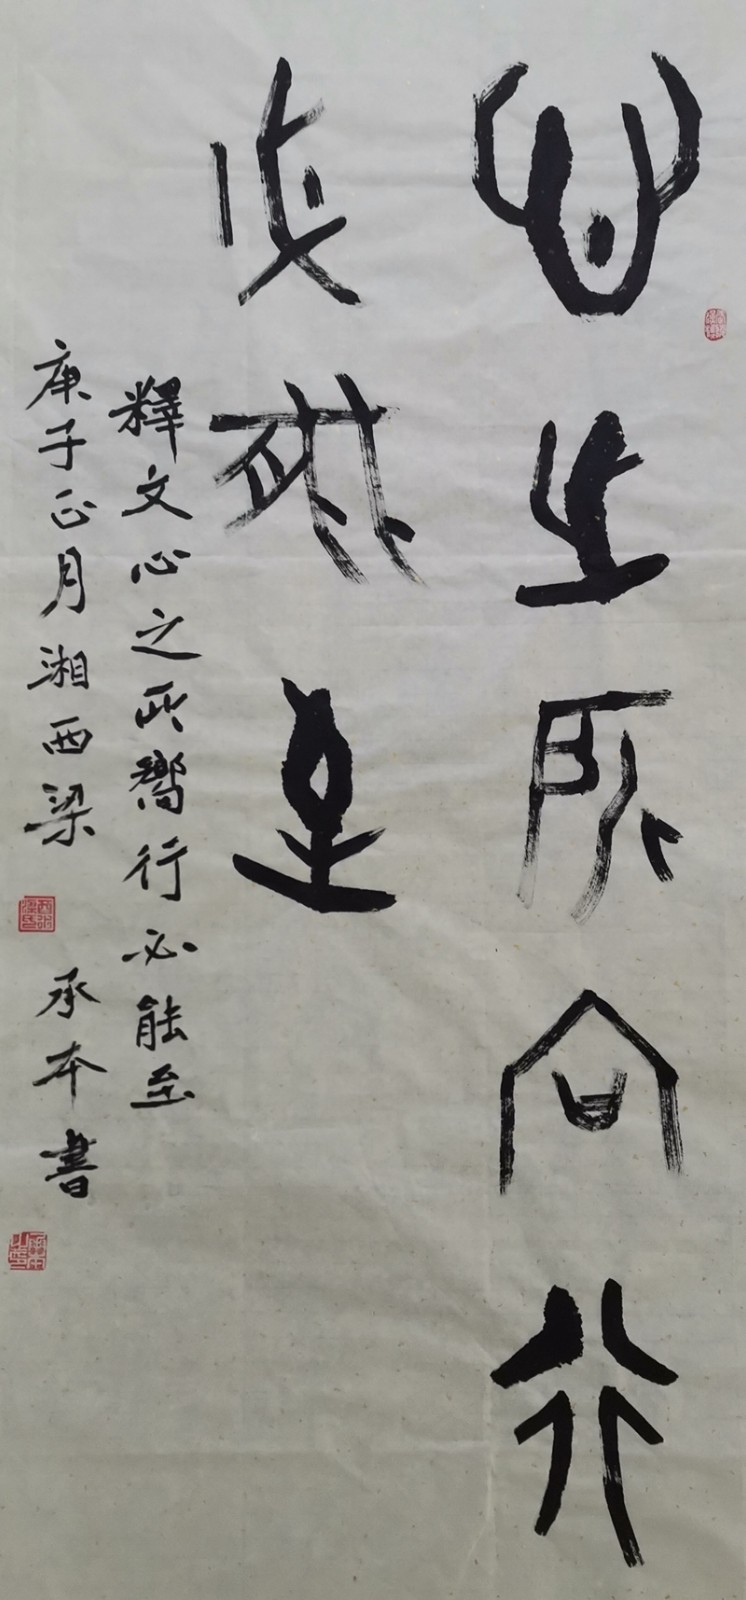 心之所向行
必能至
釋文心之所嚮行必能至
庚子正月湘西梁承本書